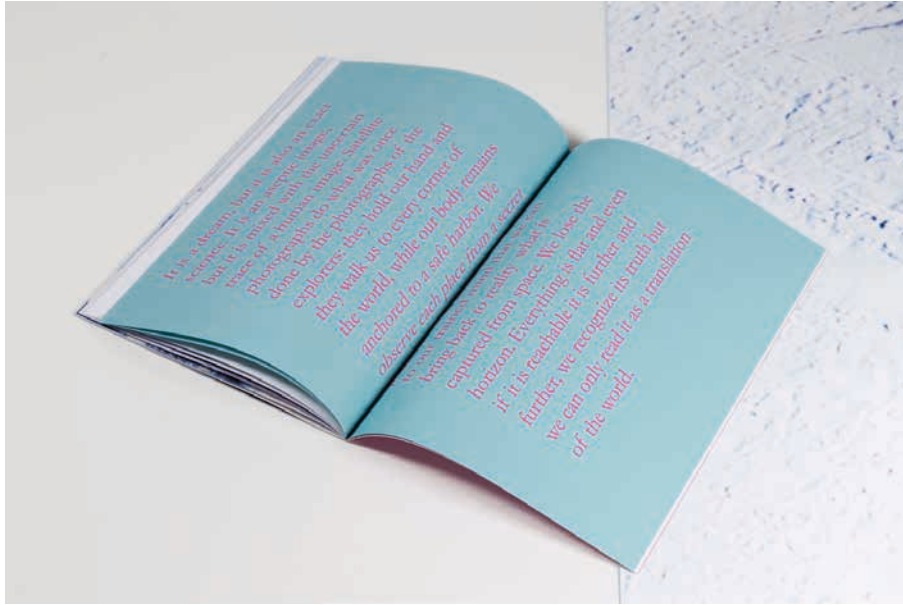 It is a dream, but it is also an exact
science. It is an aseptic image,
but it is mixed with the uncertain
trace of a human image. Satellite
photographs do what was once
done by the photographs of the
explorers: they hold our hand and
they walk us to every corner of
the world, while our body remains
anchored to a safe harbor. We
observe each place from a
bring back to reality what is
captured from space. We lose the
horizon. Everything is flat and even
if it is reachable it is further and
further, we recognize its truth but
we can only read it as a translation
of the world.